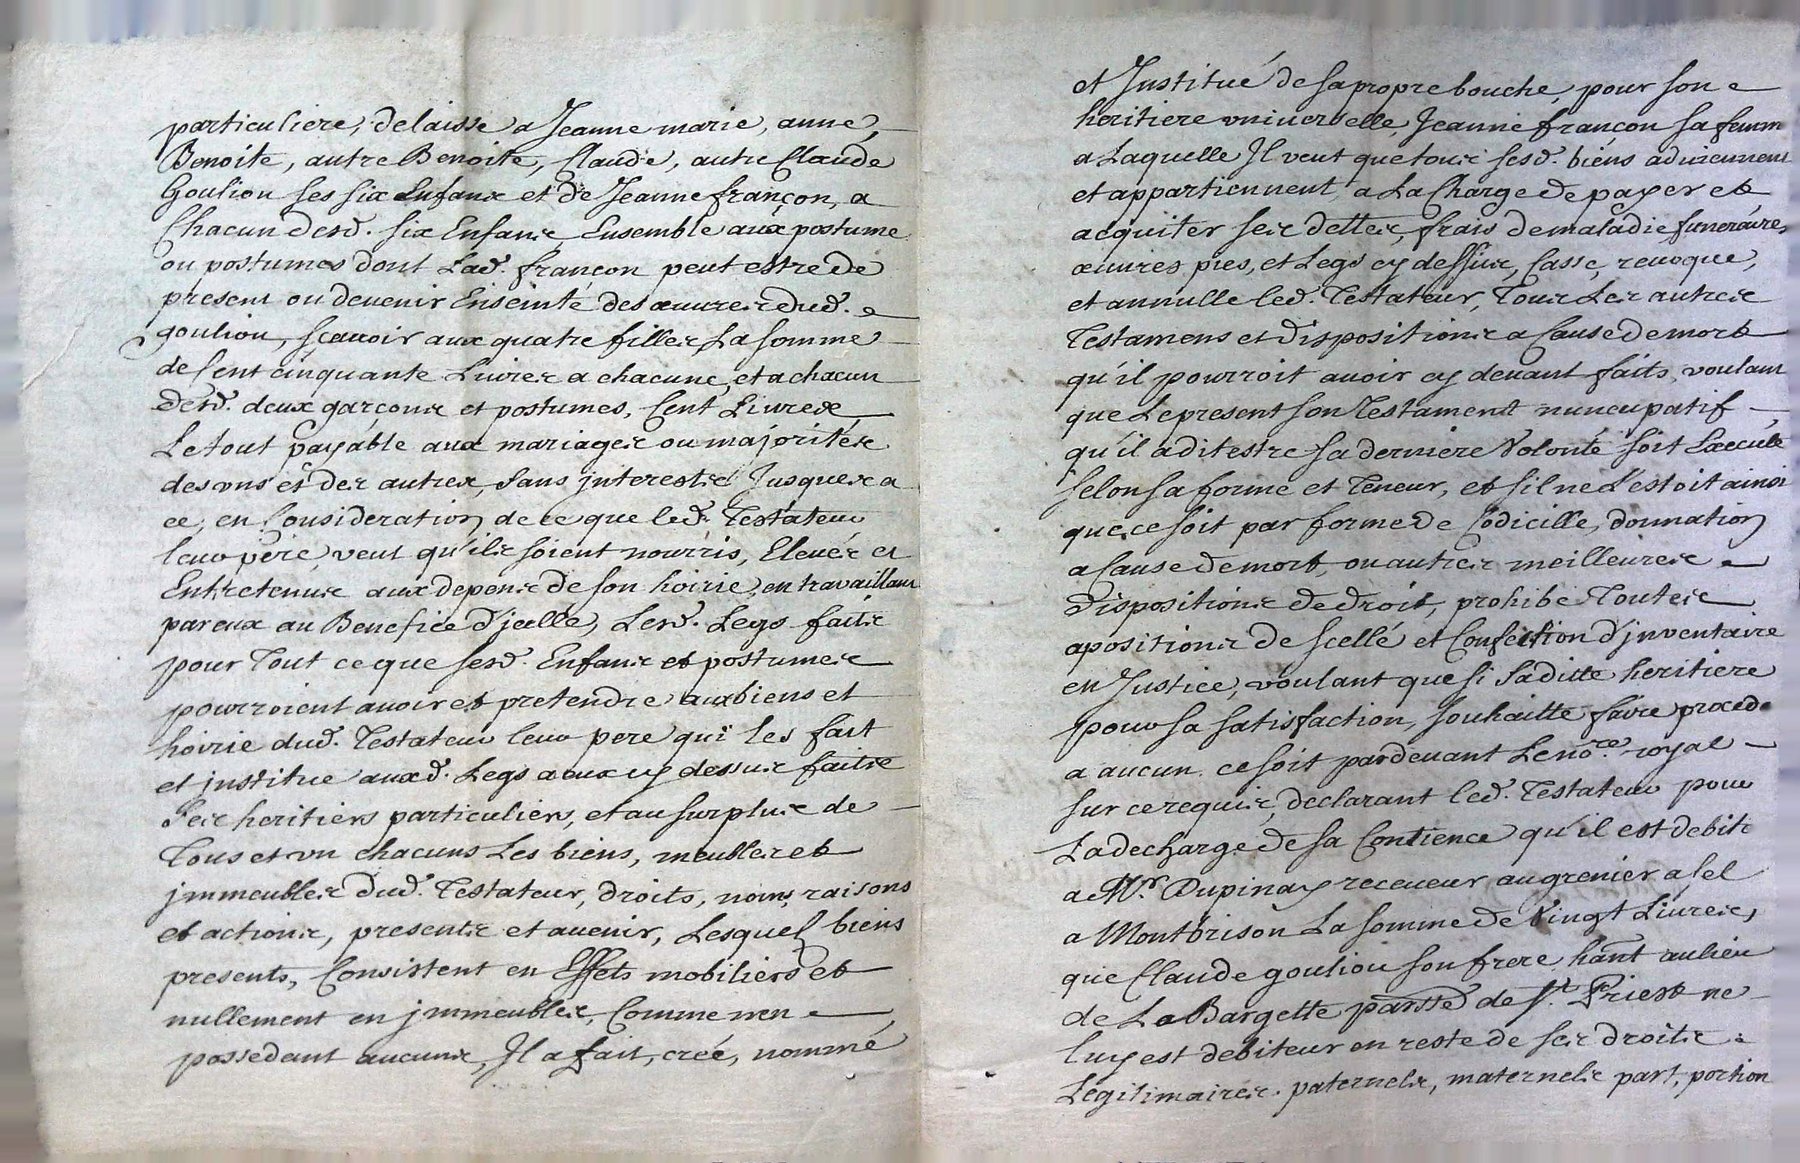 particuliere, delaisse a Jeanne marie, anne,
Benoite, autre Benoite, Claude, autre Claude
Goulion ses six Enfans et de Jeanne françon, a
Chacun desd. six Enfans Ensemble aux postume
ou postumes dont Lad. françon peut estre de
present ou devenir Enseinte des œuvres dud.
goulion, sçavoir aux quatre filles La somme
de Cent cinquante Livres a chacune, et a chacun
desd. deux garçons et postumes, Cent Livres
Le tout payable aux mariages ou majorités
des uns et des autres, sans interests Jusques a
ce, en Consideration de ce que led. Testateur
leur pere, veut qu'ils soient nourris, Elevés et
Entretenus aux depens de son hoirie, en travaillant
par eux au Benefice d'jcelle, Lesd. Legs faits
pour Tout ce que sesd. Enfans et postumes
pourroient avoir et pretendre aux biens et
hoirie dud. Testateur leur pere qui les fait
et jnstitue auxd. Legs a eux cy dessus faits
Ses heritiers particuliers, et au surplus de
Tous et un chacuns Les biens, meubles et
jmmeubles dud. Testateur, droits, noms, raisons
et actions, presents et avenir, Lesquels biens
presents, Consistent en Effets mobiliers et
nullement en jmmeubles, Comme nen
possedant aucuns, Jl a fait, créé, nommé
et Jnstitué de sa propre bouche, pour son
heritiere universelle, Jeanne françon sa femme
a Laquelle Jl veut que tous sesd. biens adviennent
et appartiennent, a La Charge de payer et
acquiter ses dettes, frais de maladie funeraires,
œuvres pies, et Legs cy dessus, Casse, revoque,
et annulle led. Testateur, Tous Les autres
Testamens et dispositions a Cause de mort
qu'il pourroit avoir cy devant faits, voulant
que Le present son Testament nuncupatif
qu'il a dit estre sa derniere Volonté soit Exécuté
selon sa forme et Teneur, et s'il ne L'estoit ainsi
que ce soit par forme de Codicille, donnation
a Cause de mort, ou autres meilleures
dispositions de droit, prohibe Toutes
apositions de scellé et Confection d'jnventaire
en Justice, voulant que si saditte heritiere
pour sa satisfaction, souhaitte faire procede
a aucun. ce soit pardevant Le no.re royal
sur ce requis, declarant led. Testateur pour
La decharge de sa Contience qu'il est debit
a Mr. Dupinay receveur au grenier a sel
a Montbrison La somme de Vingt Livres,
que Claude goulion son frere hant au lieu
de La Bargette parsse de St. Priest ne
luy est debiteur en reste de ses droits
Legitimaires. paternels, maternels part, portion